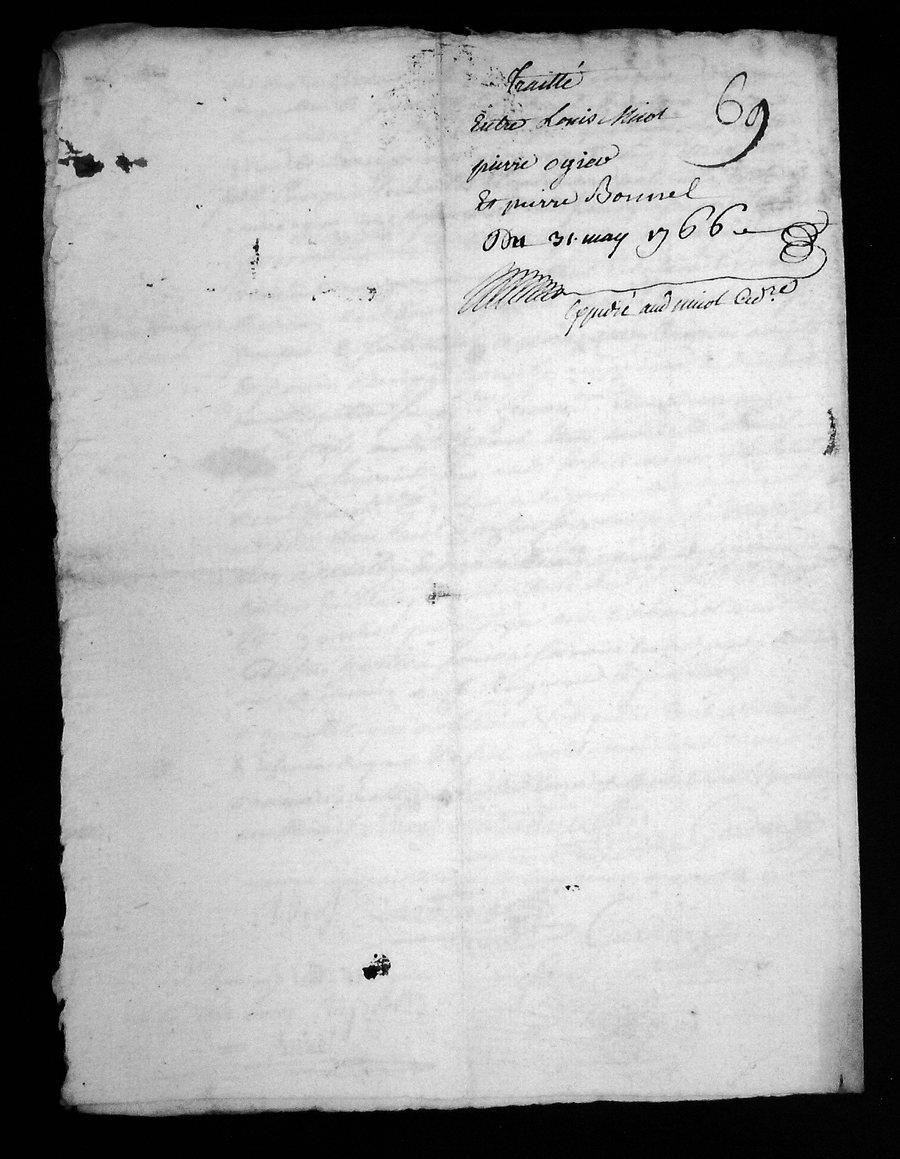 Traitté
Entre Louis Micol
69
pierre ogier
Et pierre Bonnel
Du 31 may 1766
Expedié aud micol